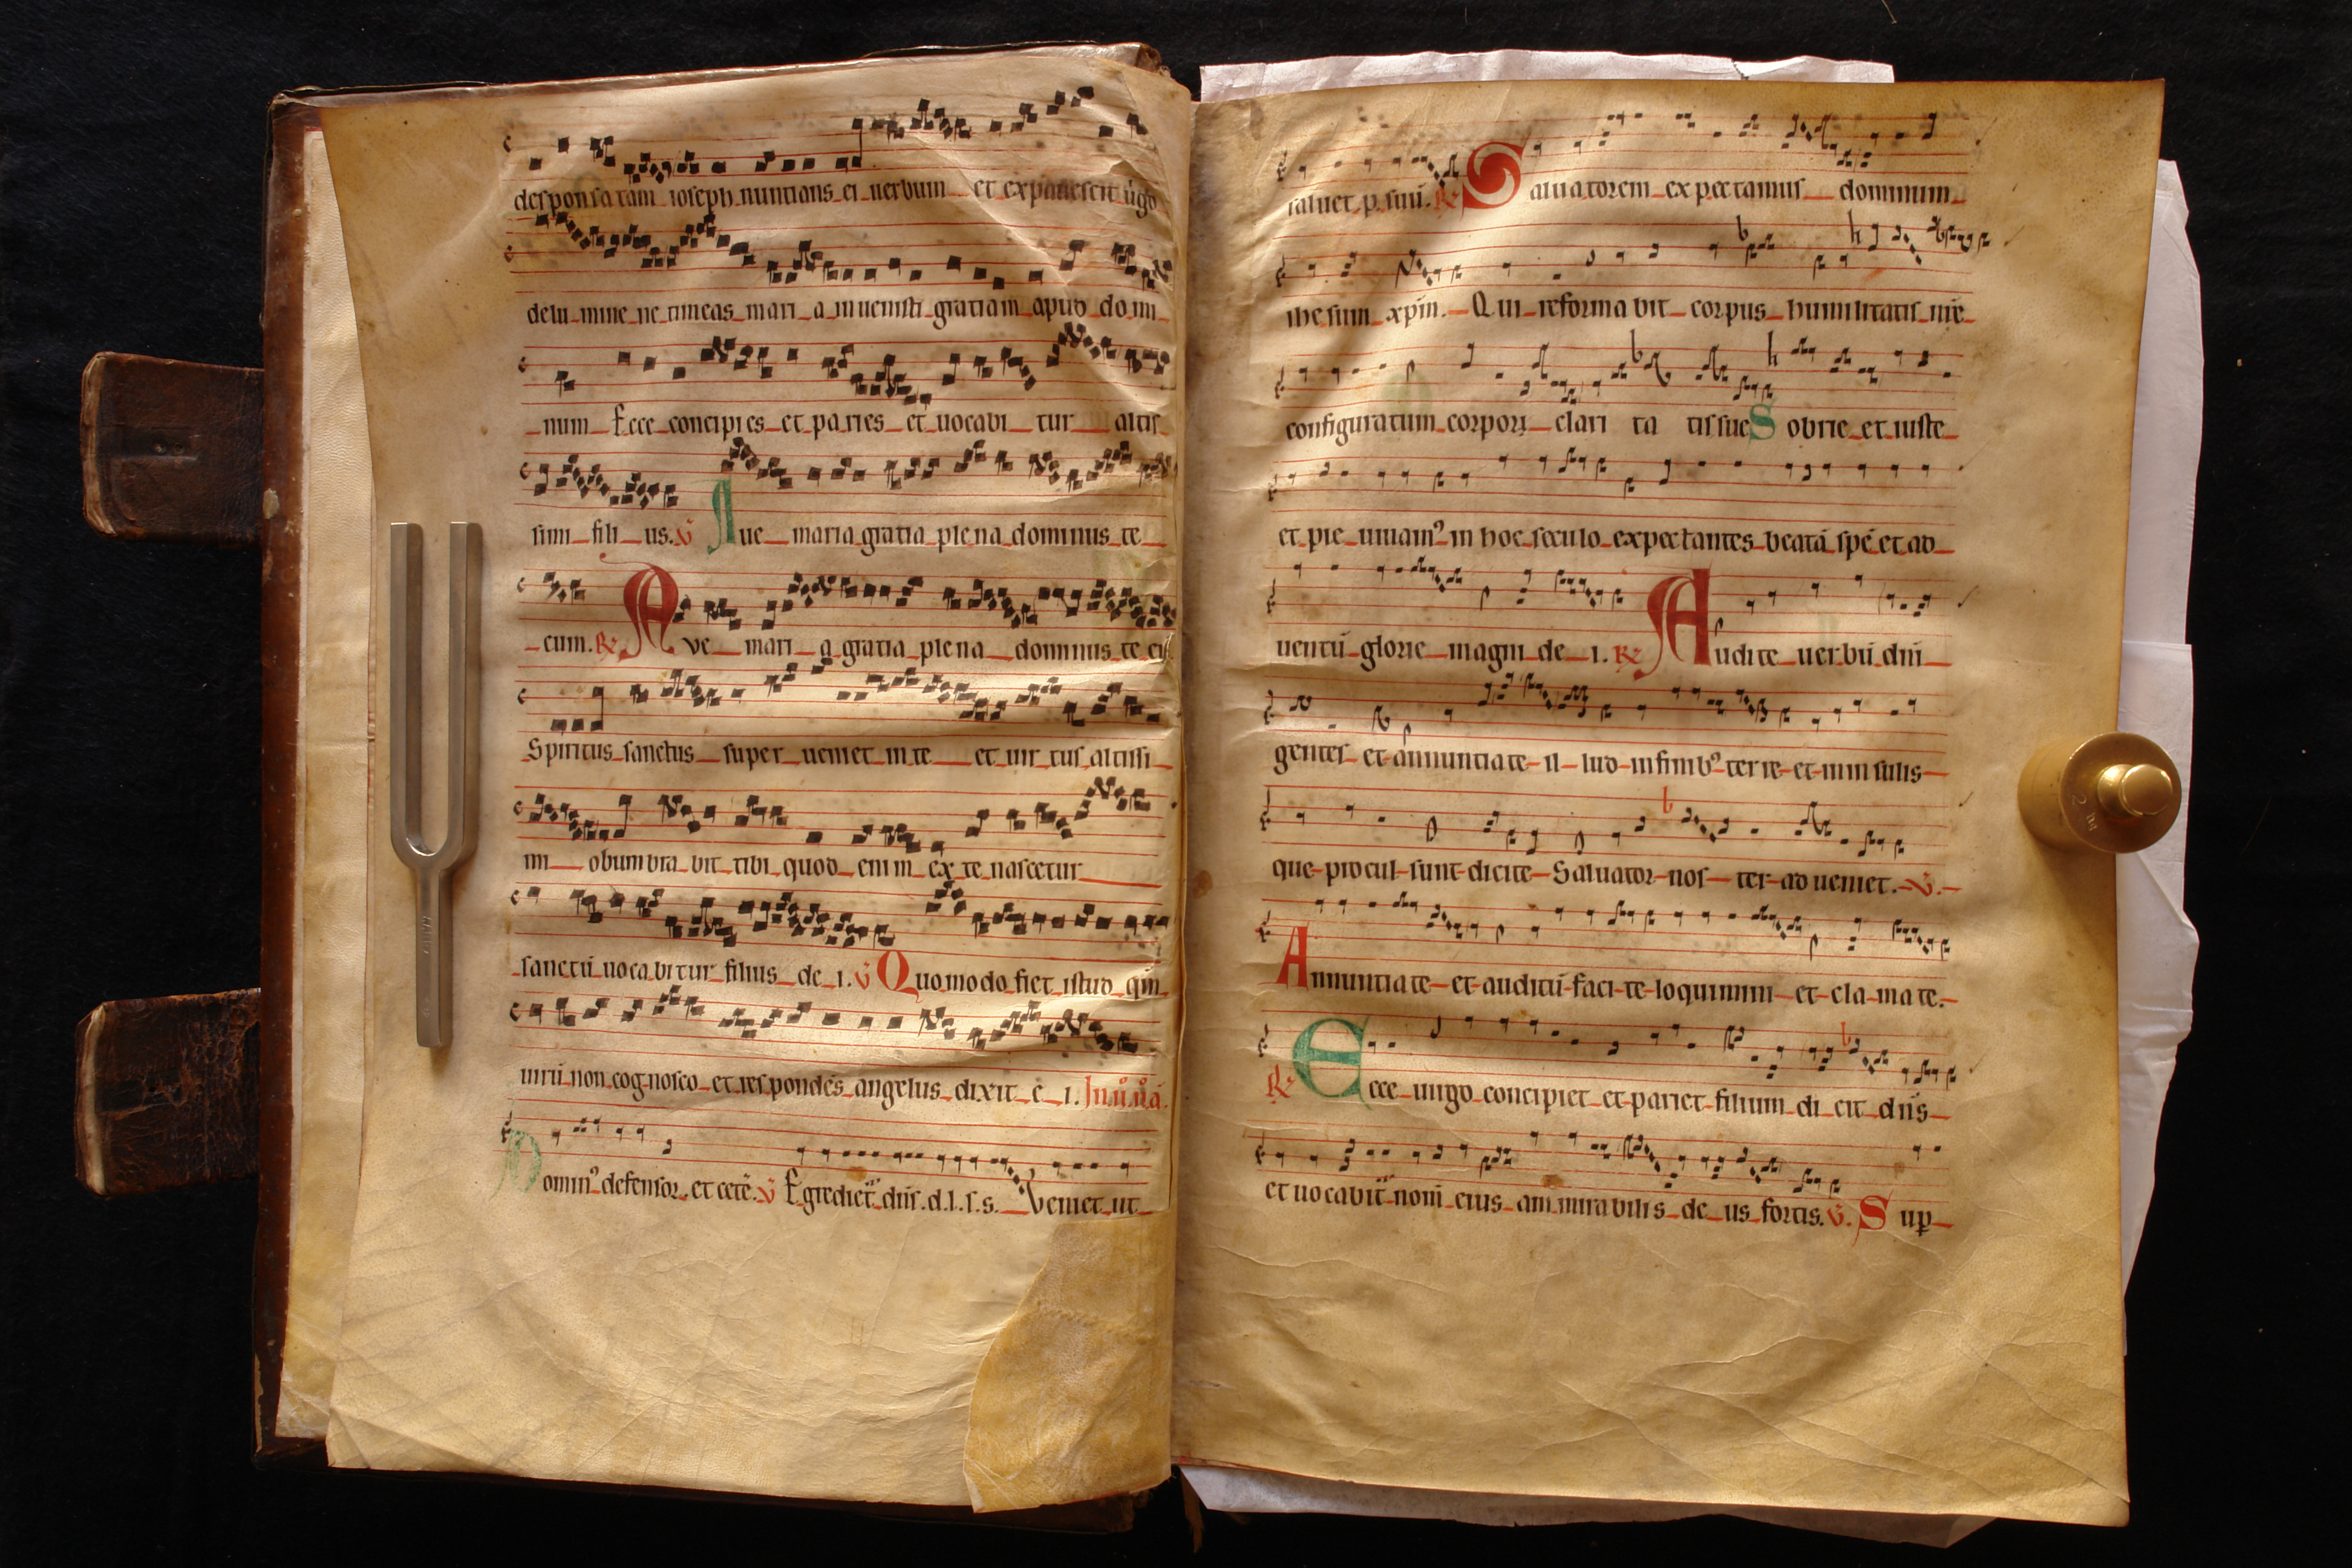 desponsatam ioseph nuntians ei uerbum et expauescit uigo
delumine ne timeas maria inuenisti gratiam apud domi
num Ecce concipies et paries et uocabitur altis
simi filius. v̄ Aue maria gratia plena dominus te
cum. R Ave maria gratia plena dominus tecū
Spiritus sanctus superueniet in te et uirtus altissi
mi obumbrabit tibi quod enim ex te nascetur
sanctū uocabitur filius dei. v̄ Quomodo fiet istud qm̄
uirū non cognosco et respondēs angelus dixit ei.
Domin⁹ defensor. et cetē. v̄ Egrediet̄ dn̄s .d.l.s.s. Veniet ut
saluet p. suū. R Saluatorem expectamus dominum
ihesum xpīm. Qui reformabit corpus humilitatis nr̄e
configuratum corpori claritatis sue Sobrie et iuste
et pie uiuam⁹ in hoc seculo expectantes beatā spē et ad
uentū glorie magni dei. R Audite uerbū dn̄i
gentes et annuntiate illud in finib⁹ terre et in insulis
que procul sunt dicite Saluator noster adueniet. v̄.
Annuntiate et auditū facite loquimini et clamate.
R Ecce uirgo concipiet et pariet filium dicit dn̄s
et uocabit̄ nom̄ eius ammirabilis deus fortis. v̄. Sup